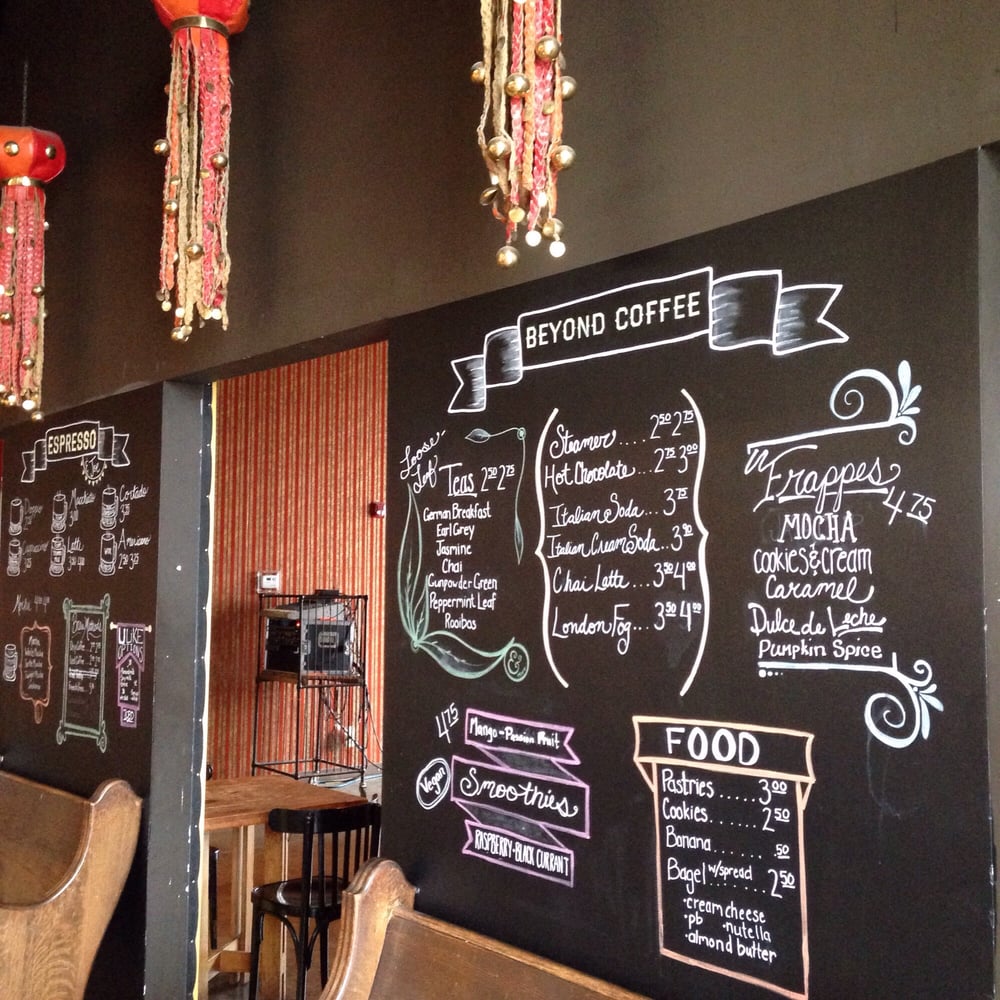 ESPRESSO
Doppio
Macchiato
3.00
Cortado
3.25
Cappuccino
Latte
Americano
2.50 3.25
Mocha
MILK
OPTIONS
BEYOND COFFEE
Loose-
Leaf
Teas 2.50 2.75
German Breakfast
Earl Grey
Jasmine
Chai
Gunpowder Green
Peppermint Leaf
Rooibos
&
Steamer.... 2.50 2.75
Hot Chocolate.. 2.75 3.00
Italian Soda.. 3.75
Italian Cream Soda..3.90
Chai Latte... 3.50 4.00
London Fog... 3.50 4.00
Frappes
4.75
MOCHA
Cookies & Cream
Caramel
Dulce de Leche
Pumpkin Spice
4.75
Mango-Passion Fruit
Vegan
Smoothies
RASPBERRY-BLACK CURRANT
FOOD
Pastries.....3.00
Cookies......2.50
Banana..... .50
Bagel w/spread....2.50
•cream cheese
•pb •nutella
•almond butter